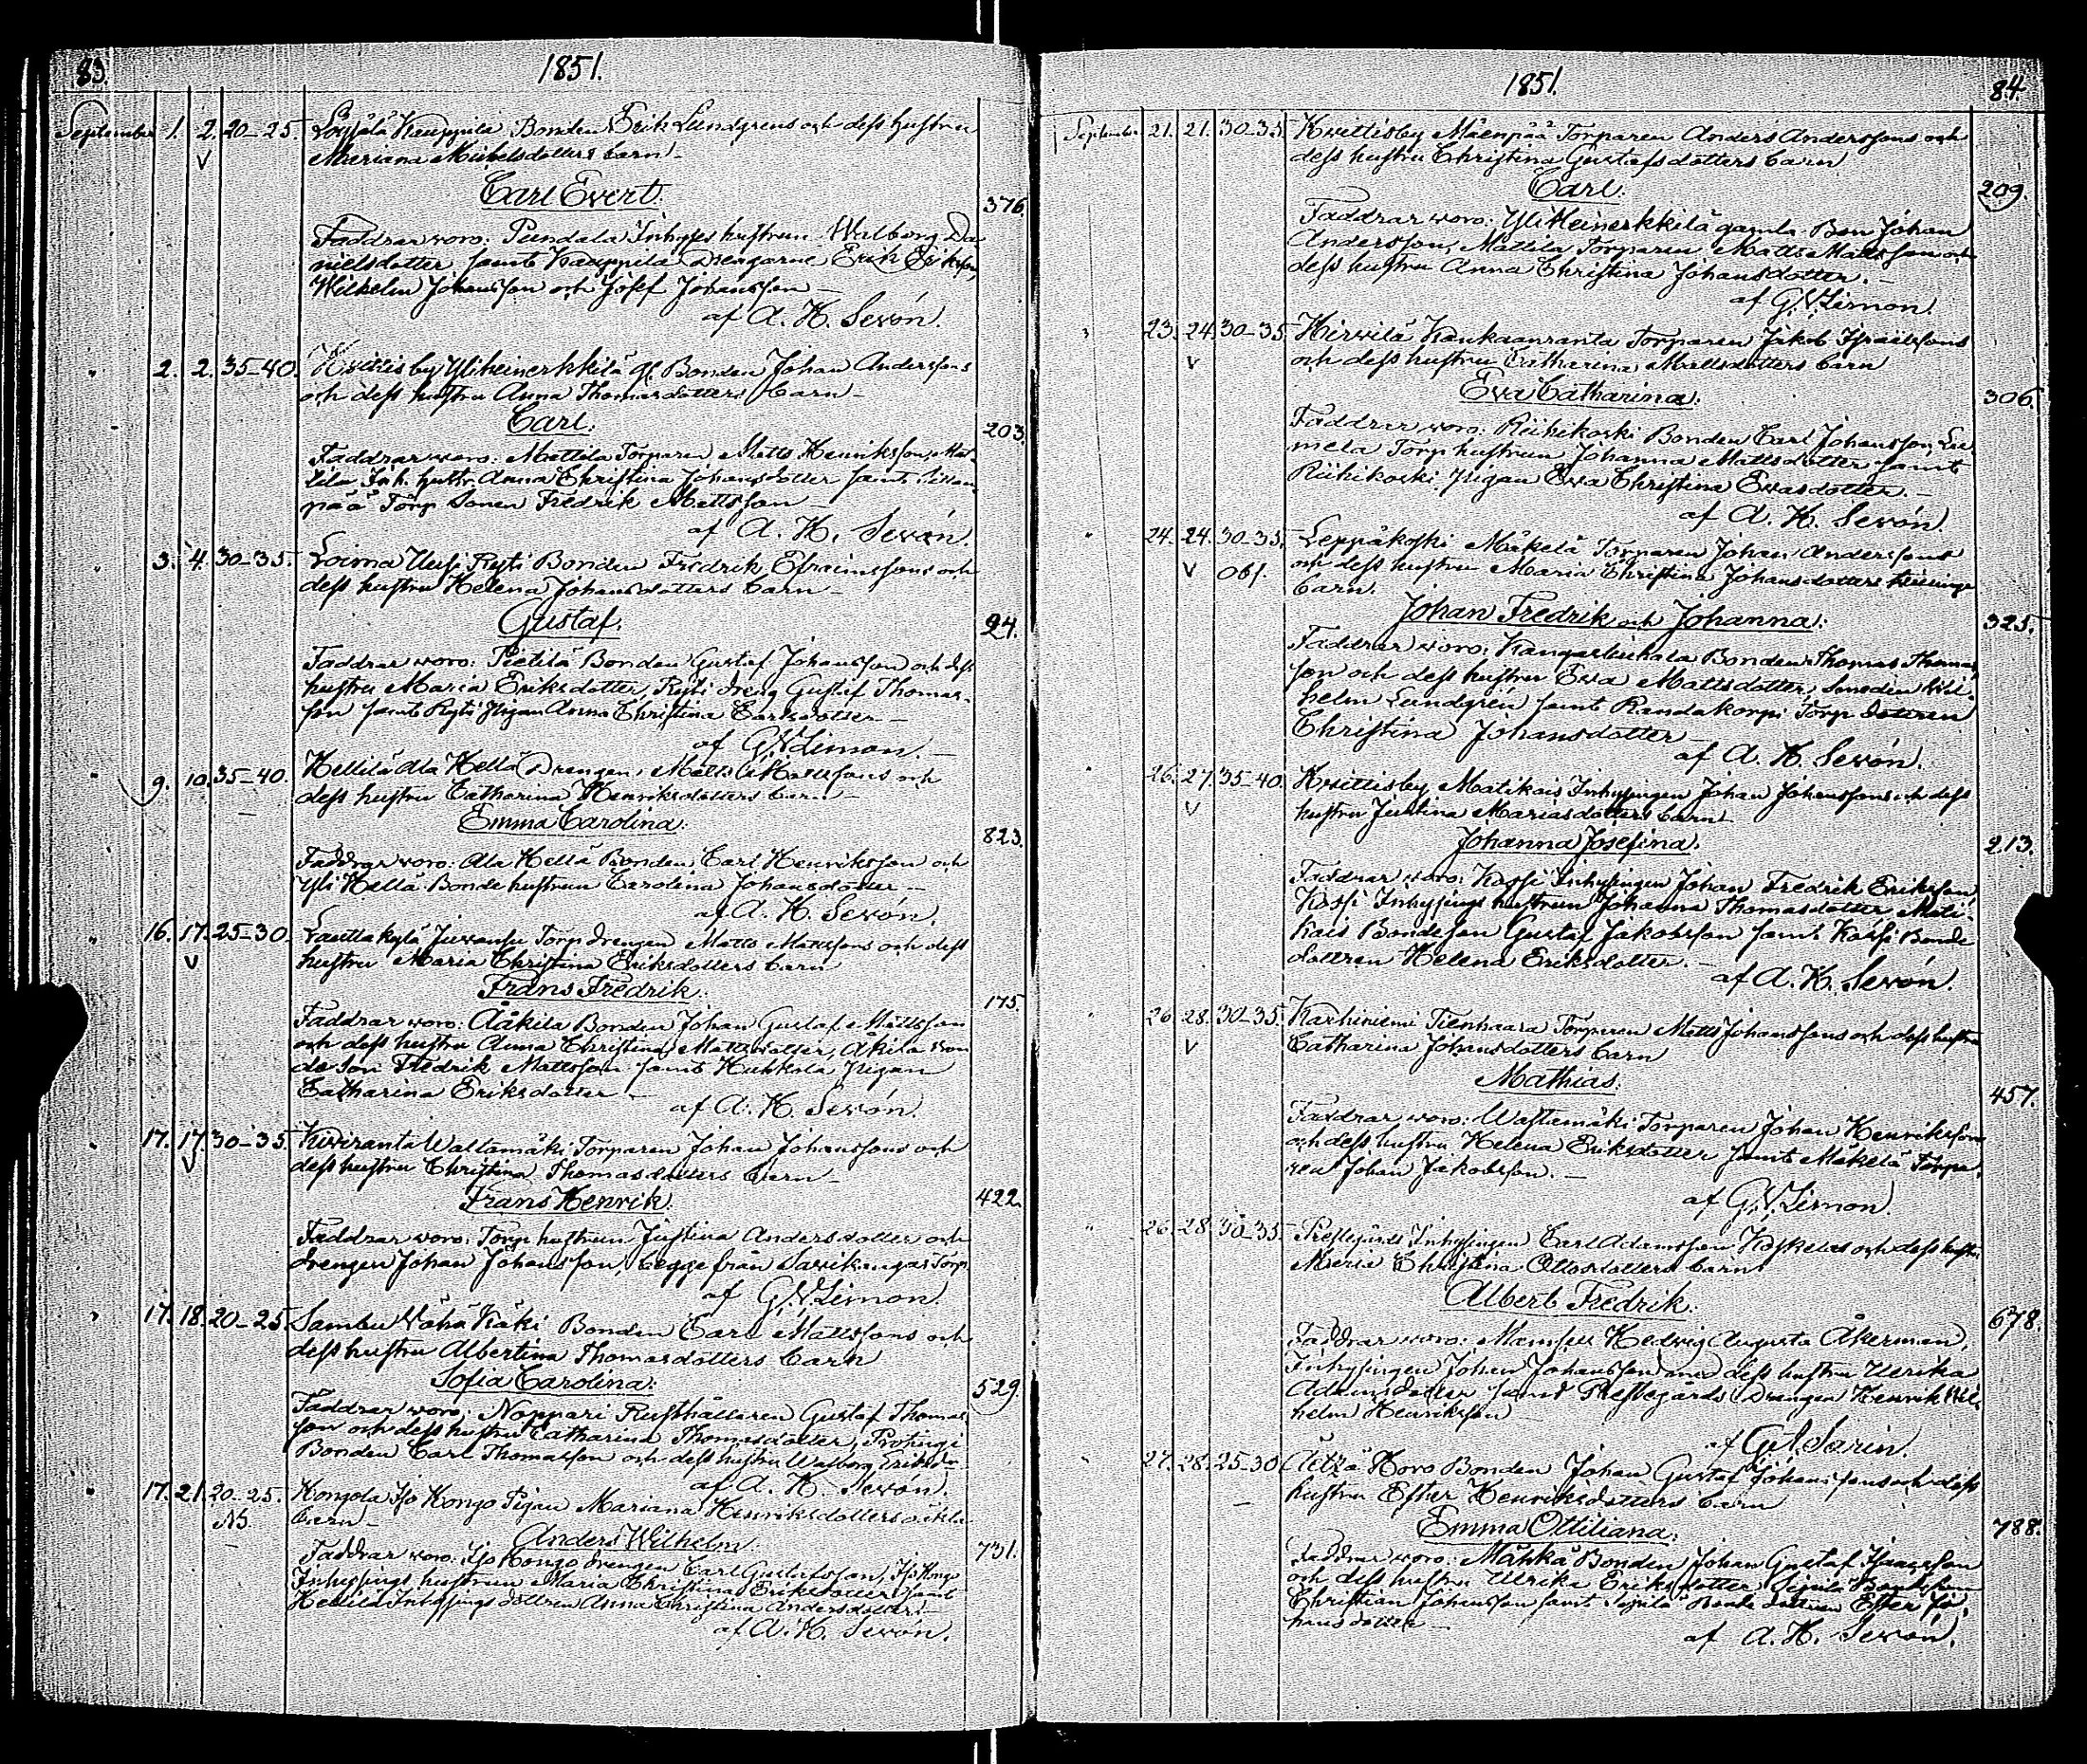 83.
1851.
September 1. 2. 20-25 Kauppila Bonden Erik Lundgrens och dess hustru
V Mariana Michelsdotters barn
Carl Evert.
376.
Faddrar woro: Pundala Inhyses hustrun Walborg Da
nielsdotter samt Kauppila Drengarne Erik Eriksson,
Wilhelm Johansson och Josef Johansson
af A. H. Sevón.
" 2. 2. 35-40. Kvittisby Yliheinerkkilä gl. Bonden Johan Anderssons
och dess hustru Anna Thomasdotters barn
Carl.
203.
Faddrar woro: Mattila Torparen Matts Henriksson, Mat-
tila Inh. hustr. Anna Christina Johansdotter samt
pää Torp Sonen Fredrik Mattsson
af A. H. Sevón.
" 3. 4. 30-35. Loima Uusi Ryti Bonden Fredrik Efraimssons och
dess hustru Helena Johansdotters barn
Gustaf.
24.
Faddrar woro: Pietilä Bonden Gustaf Johansson och dess
hustru Maria Eriksdotter, Ryti dreng Gustaf Thomas-
son samt Ryti Pigan Anna Christina Carlsdotter
af G. V. Limon.
" 9. 10. 35-40. Hellilä Ala Hellä Drengen Matts Mattssons och
dess hustru Catharina Henriksdotters barn
Emma Carolina.
823.
Faddrar woro: Ala Hellä Bonden Carl Henriksson och
Yli Hellä Bonde hustrun Carolina Johansdotter
af A. H. Sevón.
" 16. 17. 25-30. Lauttakylä Torp drengen Matts Mattssons och dess
V hustru Maria Christina Eriksdotters barn
Frans Fredrik.
175.
Faddrar woro: Ååkila Bonden Johan Gustaf Mattsson
och dess hustru Anna Christina Mattsdotter, Åkila Bon
de Son Fredrik Mattsson samt Huhkola Pigan
Catharina Eriksdotter
af A. H. Sevón.
" 17. 17. 30-35. Kiviranta Waltamäki Torparen Johan Johanssons och
V dess hustru Christina Thomasdotters barn
Frans Henrik.
422.
Faddrar woro: Torp hustrun Justina Andersdotter och
drengen Johan Johansson, begge från Savikangas Torp
af G. V. Limon.
" 17. 18. 20-25. Sambu Wähä Käki Bonden Carl Mattssons och
dess hustru Albertina Thomasdotters barn
Sofia Carolina.
529.
Faddrar woro: Noppari Rusthållaren Gustaf Thomas
son och dess hustru Catharina Thomasdotter,
Bonden Carl Thomasson och dess hustru Walborg Eriksd.
af A. H. Sevón.
" 17. 21. 20-25. Kongola Iso Kongo Pigan Mariana Henriksdotters oäkta
N. barn
Anders Wilhelm.
731.
Faddrar woro: Iso Kongo drengen Carl Gustafsson, Iso Kongo
Inhysings hustrun Maria Christina Eriksdotter samt
Inhysings dottren Anna Christina Andersdotter
af A. H. Sevón.
1851.
84.
September 21. 21. 30-35. Kvittisby Mäenpää Torparen Anders Anderssons och
dess hustru Christina Gustafsdotters barn
Carl.
209.
Faddrar woro: Yliheinerkkilä gamla Bon Johan
Andersson, Mattila Torparen Matts Mattsson och
dess hustru Anna Christina Johansdotter.
af G. V. Limon.
" 23. 24. 30-35. Hirvilä Kaukaanranta Torparen Jakob Israelssons
V och dess hustru Catharina Mattsdotters barn
Eva Catharina.
306.
Faddrar woro: Riihikoski Bonden Carl Johansson,
mela Torp hustrun Johanna Mattsdotter samt
Riihikoski Pigan Eva Christina Evasdotter.
af A. H. Sevón.
" 24. 24. 30-35. Leppäkoski Mäkelä Torparen Johan Anderssons
V obs. och dess hustru Maria Christina Johansdotters tvillinge
barn.
Johan Fredrik och Johanna.
325.
Faddrar woro: Bonden Thomas Thomas
son och dess hustru Eva Mattsdotter, Smeden Wil-
helm Lundgrén samt Randakorpi Torp dottren
Christina Johansdotter
af A. H. Sevón.
" 26. 27. 35-40. Kvittisby Matikais Inhysingen Johan Johanssons och dess
V hustru Justina Mariasdotters barn
Johanna Josefina.
213.
Faddrar woro: Kassi Inhysingen Johan Fredrik Eriksson,
Kassi Inhysings hustrun Johanna Thomasdotter, Mati-
kais Bondeson Gustaf Jakobsson samt Kassi Bonde
dottren Helena Eriksdotter.
af A. H. Sevón.
" 26. 28. 30-35. Karhiniemi Tienhaara Torparen Matts Johanssons och dess hustru
V Catharina Johansdotters barn
Mathias.
457.
Faddrar woro: Wastamäki Torparen Johan Henriksson
och dess hustru Helena Eriksdotter samt Mäkelä Torpa
ren Johan Jakobsson.
af G. V. Limon.
" 26. 28. 30-35. Prestegårds Inhysingen Carl Adamsson Koskelas och dess hustru
Maria Christina Ottosdotters barn
Albert Fredrik.
678.
Faddrar woro: Mamsell Hedvig Augusta Åkerman,
Inhysingen Johan Johansson med dess hustru Ulrika
Adamsdotter samt Prestegårds Drengen Henrik Wil-
helm Henriksson
af G. A. Sarin.
" 27. 28. 25-30. Äetsä Horo Bonden Johan Gustaf Johanssons och dess
hustru Esther Henriksdotters barn
Emma Ottiliana.
788.
Faddrar woro: Mähkä Bonden Johan Gustaf Isaacsson
och dess hustru Ulrika Eriksdotter, Seppilä Bondeson
Christian Johansson samt Seppilä Bonde dottren Esther Jo-
hansdotter
af A. H. Sevón.